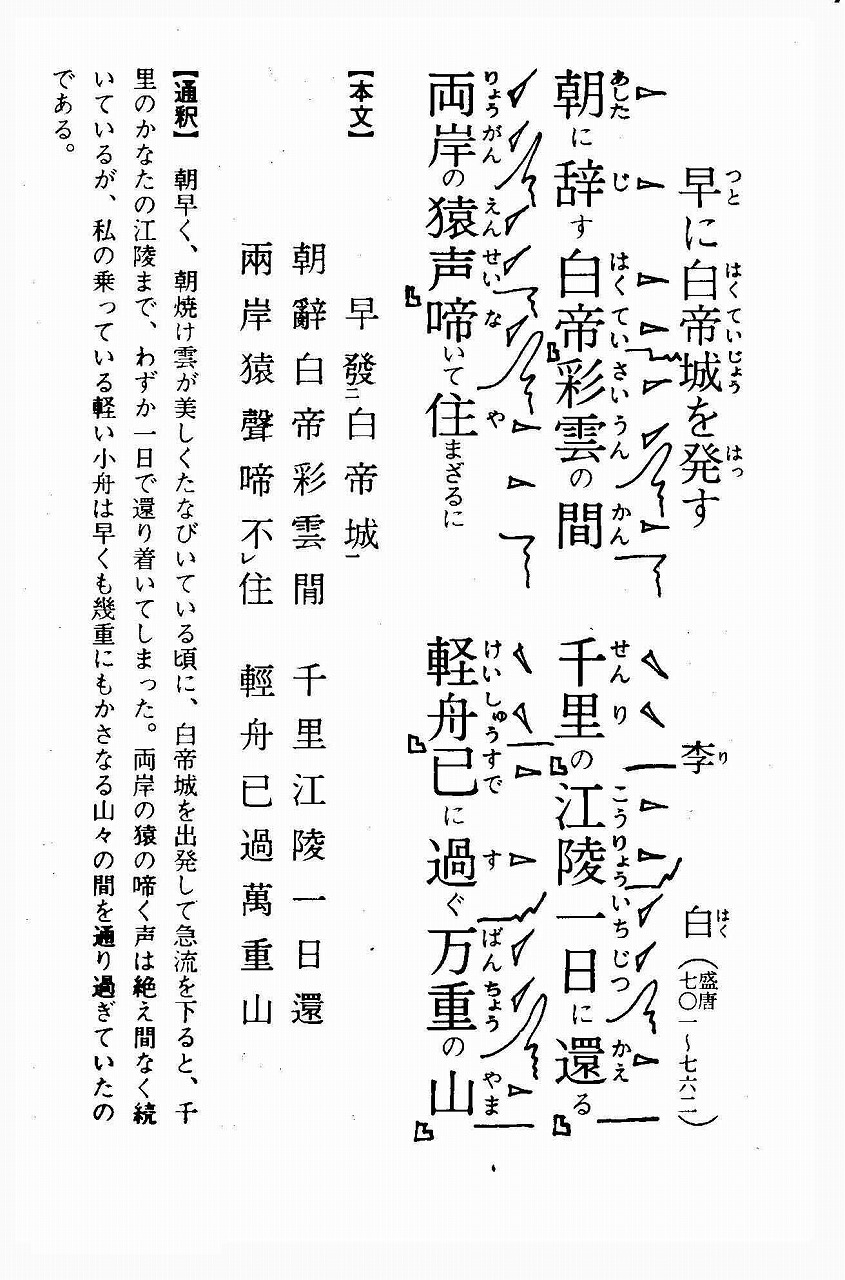 早に白帝城を発す
李白（盛唐 七〇一〜七六二）
朝に辞す白帝彩雲の間
千里の江陵一日に還る
両岸の猿声啼いて住まざるに
軽舟已に過ぐ万重の山
【本文】
早發二白帝城一
朝辭白帝彩雲閒 千里江陵一日還
兩岸猿聲啼不レ住 輕舟已過萬重山
【通釈】 朝早く、朝焼け雲が美しくたなびいている頃に、白帝城を出発して急流を下ると、千
里のかなたの江陵まで、わずか一日で還り着いてしまった。両岸の猿の啼く声は絶え間なく続
いているが、私の乗っている軽い小舟は早くも幾重にもかさなる山々の間を通り過ぎていたの
である。